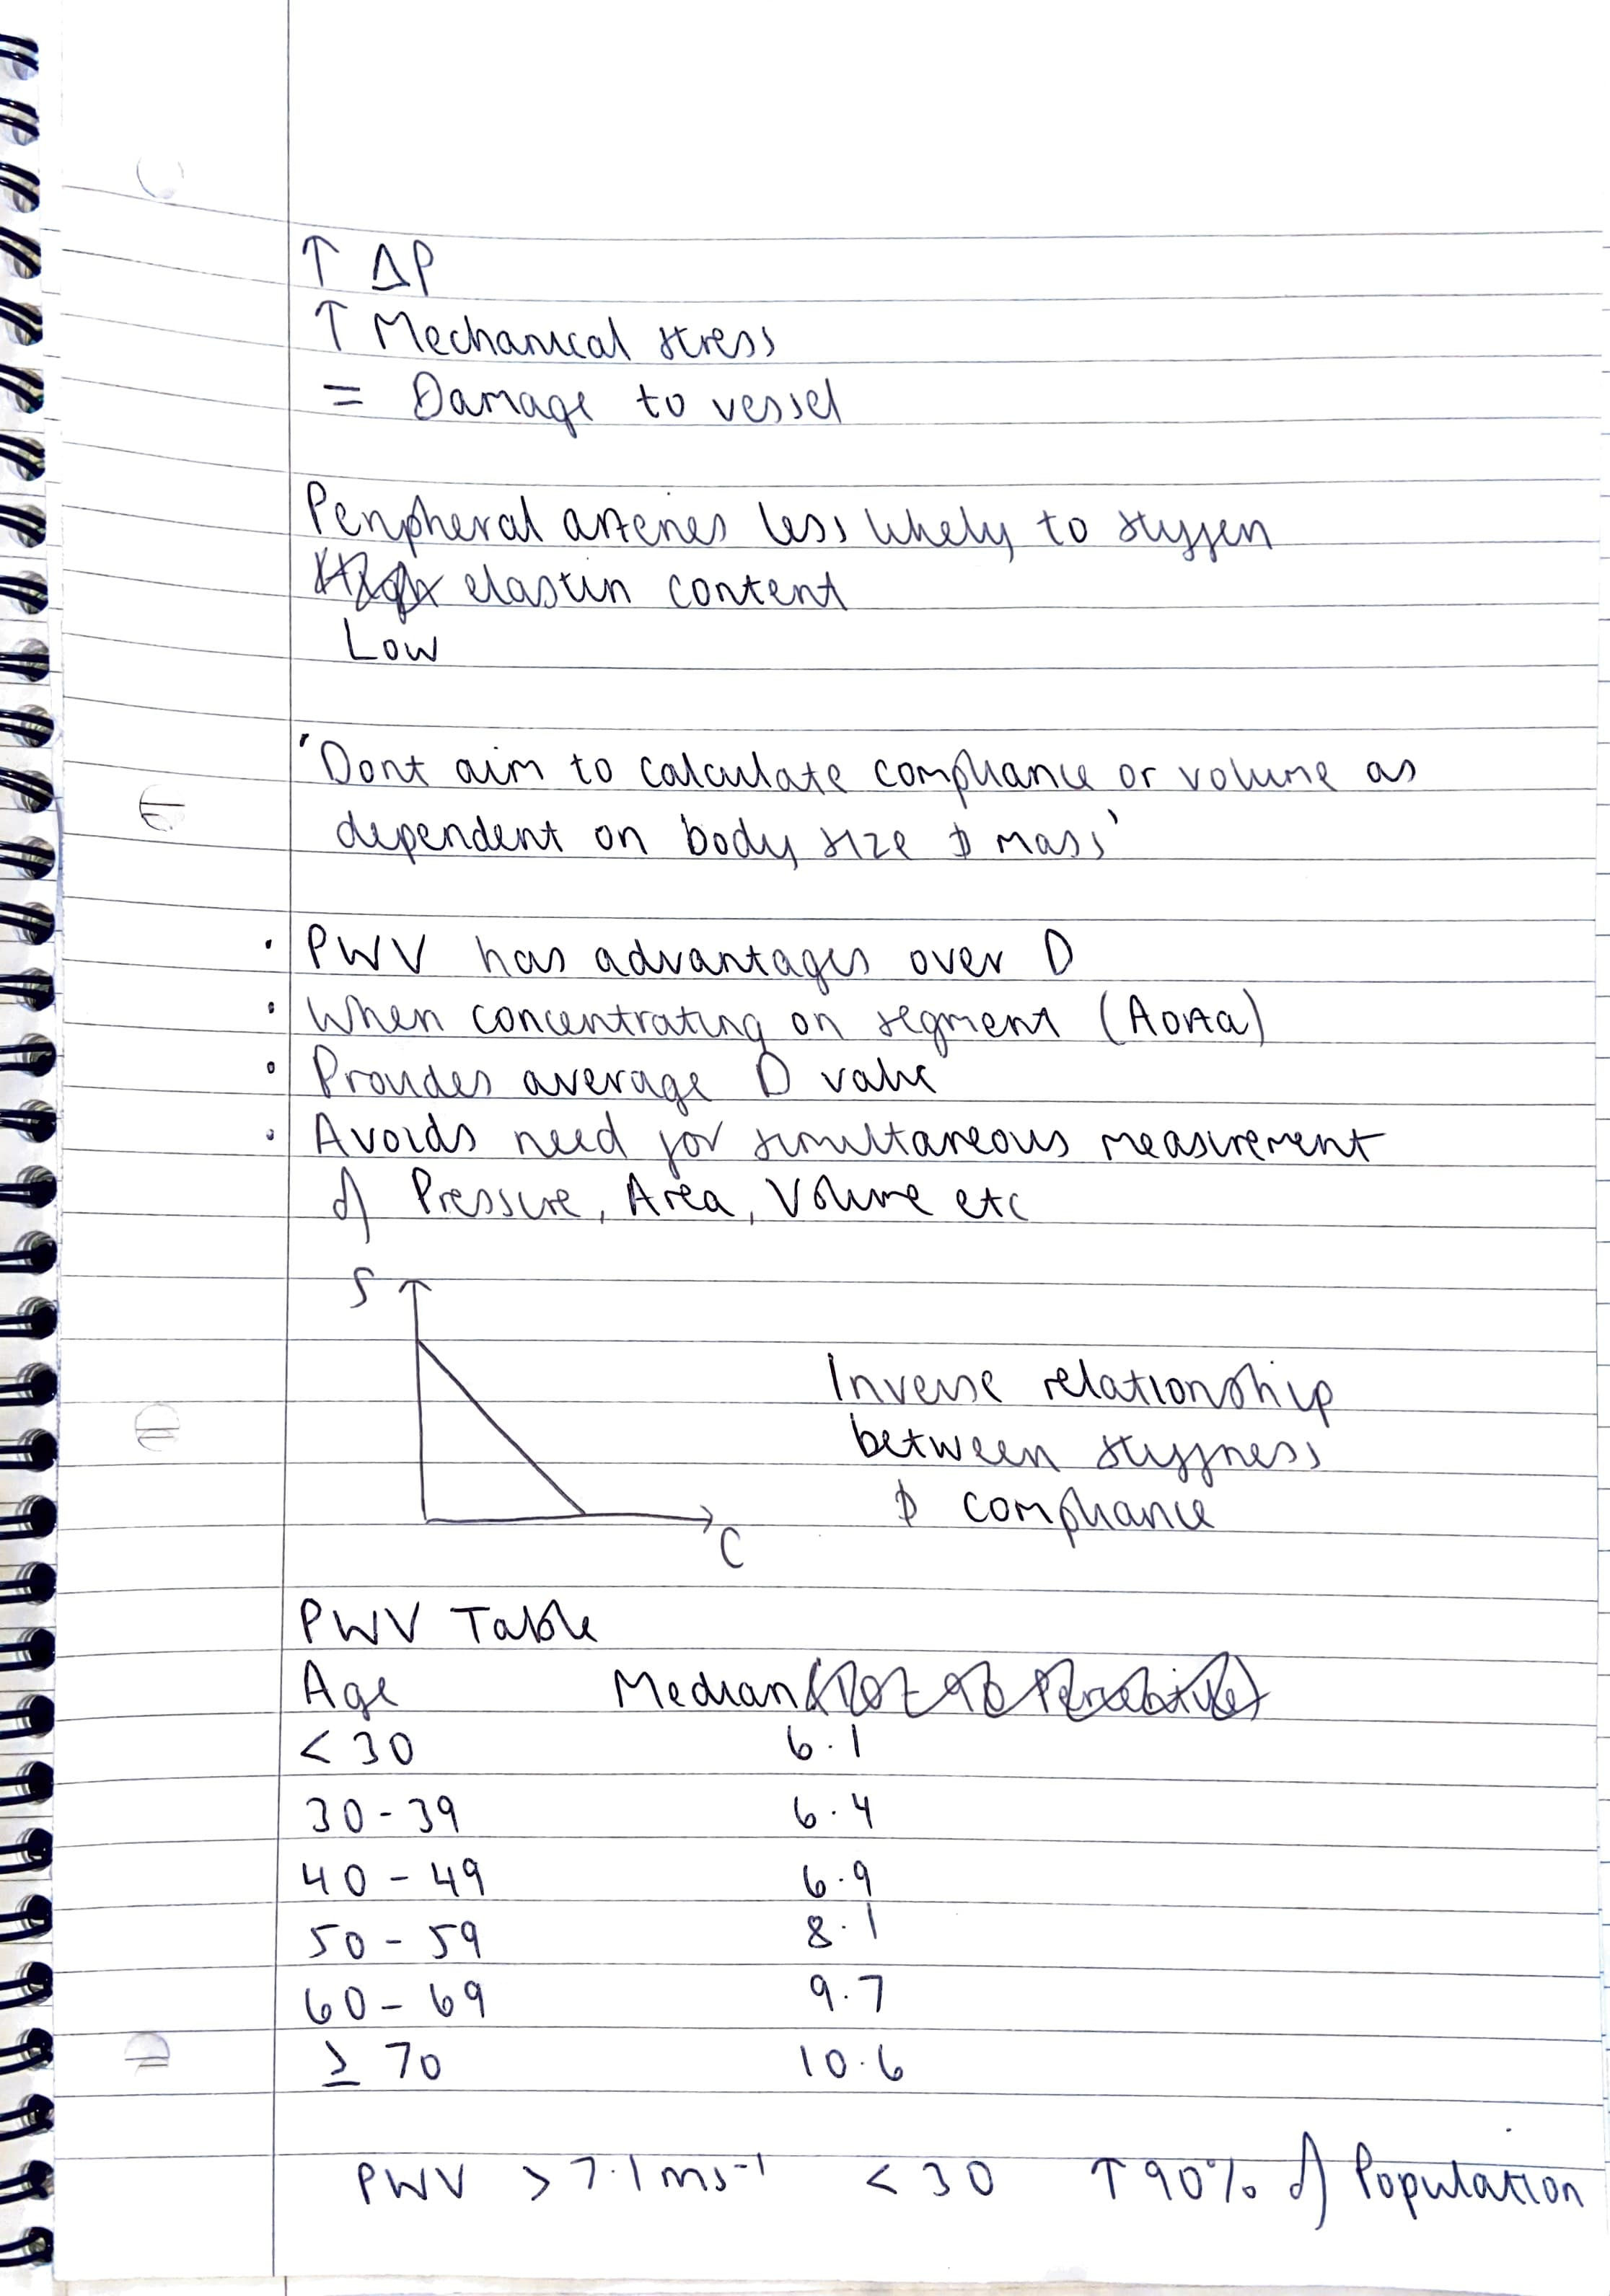 ↑ ΔP
↑ Mechanical stress
= Damage to vessel
Peripheral arteries less likely to stiffen
elastin content
Low
'Dont aim to calculate compliance or volume as
dependent on body size & mass'
• PWV has advantages over D
• When concentrating on segment (Aorta)
• Provides average D value
• Avoids need for simultaneous measurement
of Pressure, Area, Volume etc
S
Inverse relationship
between stiffness
& compliance
C
PWV Table
Age Median
< 30 6.1
30-39 6.4
40-49 6.9
50-59 8.1
60-69 9.7
≥ 70 10.6
PWV > 7.1 ms⁻¹ < 30 ↑ 90% of Population